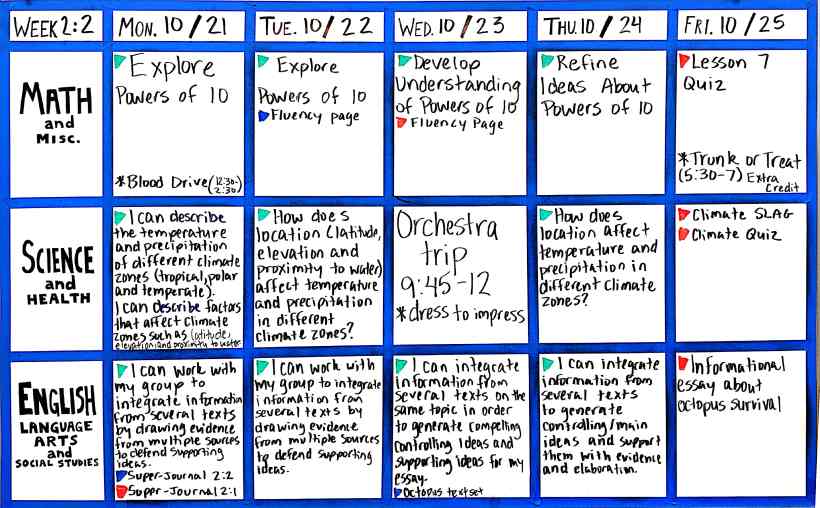 WEEK 2:2
MON. 10/21
TUE. 10/22
WED. 10/23
THU. 10/24
FRI. 10/25
MATH
and
MISC.
Explore
Powers of 10
*Blood Drive (12:30-
2:30)
Explore
Powers of 10
Fluency page
Develop
Understanding
of Powers of 10
Fluency Page
Refine
Ideas About
Powers of 10
Lesson 7
Quiz
*Trunk or Treat
(5:30-7) Extra
Credit
SCIENCE
and
HEALTH
I can describe
the temperature
and precipitation
of different climate
zones (tropical, polar
and temperate).
I can describe factors
that affect climate
zones such as latitude,
elevation and proximity to water
How does
location (latitude,
elevation and
proximity to water)
affect temperature
and precipitation
in different
climate zones?
Orchestra
trip
9:45-12
*dress to impress
How does
location affect
temperature and
precipitation in
different climate
zones?
Climate SLAG
Climate Quiz
ENGLISH
LANGUAGE
ARTS
and
SOCIAL STUDIES
I can work with
my group to
integrate information
from several texts
by drawing evidence
from multiple sources
to defend supporting
ideas.
Super-Journal 2:2
Super-Journal 2:1
I can work with
my group to integrate
information from
several texts by
drawing evidence
from multiple sources
to defend supporting
ideas.
I can integrate
information from
several texts on the
same topic in order
to generate compelling
controlling Ideas and
supporting ideas for my
essay.
Octopus text set
I can integrate
information from
several texts
to generate
controlling/main
ideas and support
them with evidence
and elaboration.
Informational
essay about
octopus survival